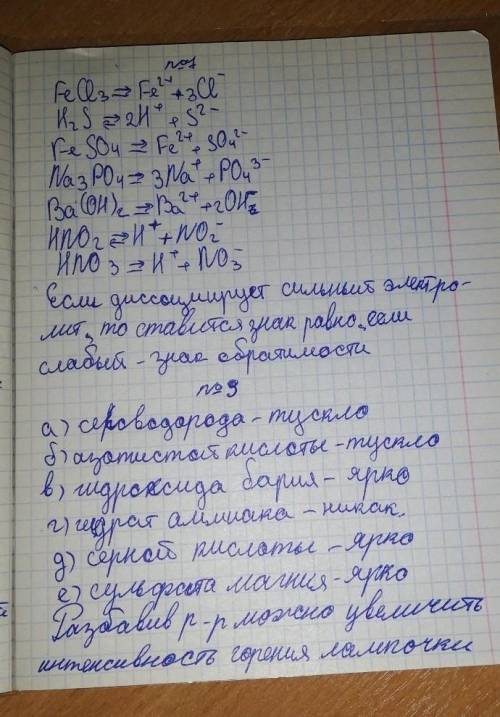 №1
FeCl3 ⇌ Fe²⁺ + 3Cl⁻
H2S ⇌ 2H⁺ + S²⁻
FeSO4 ⇌ Fe²⁺ + SO4²⁻
Na3PO4 ⇌ 3Na⁺ + PO4³⁻
Ba(OH)2 ⇌ Ba²⁺ + 2OH⁻
HNO2 ⇌ H⁺ + NO2⁻
HNO3 ⇌ H⁺ + NO3⁻
Если диссоциирует сильный электро-
лит, то ставится знак равно, если
слабый - знак обратимости
№9
а) сероводорода - тускло
б) азотистой кислоты - тускло
в) гидроксида бария - ярко
г) гидрат аммиака - никак.
д) серной кислоты - ярко
е) сульфата магния - ярко
Разбавив р-р можно увеличить
интенсивность горения лампочки